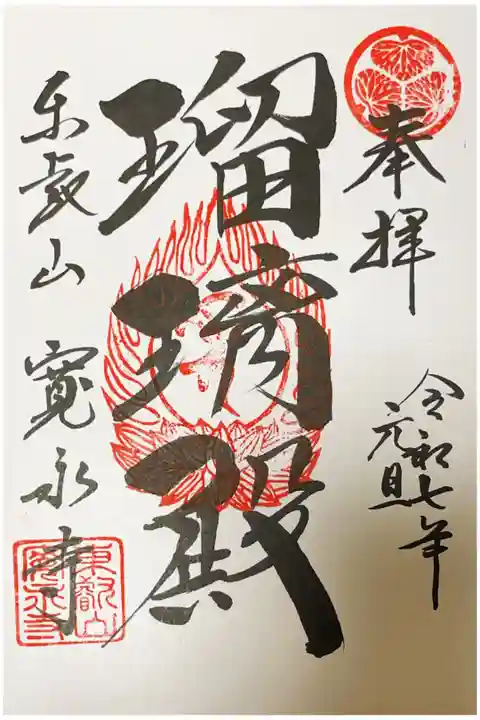 奉拝
令和七年
元旦
瑠璃殿
東叡山 寛永寺
東叡山
寛永寺